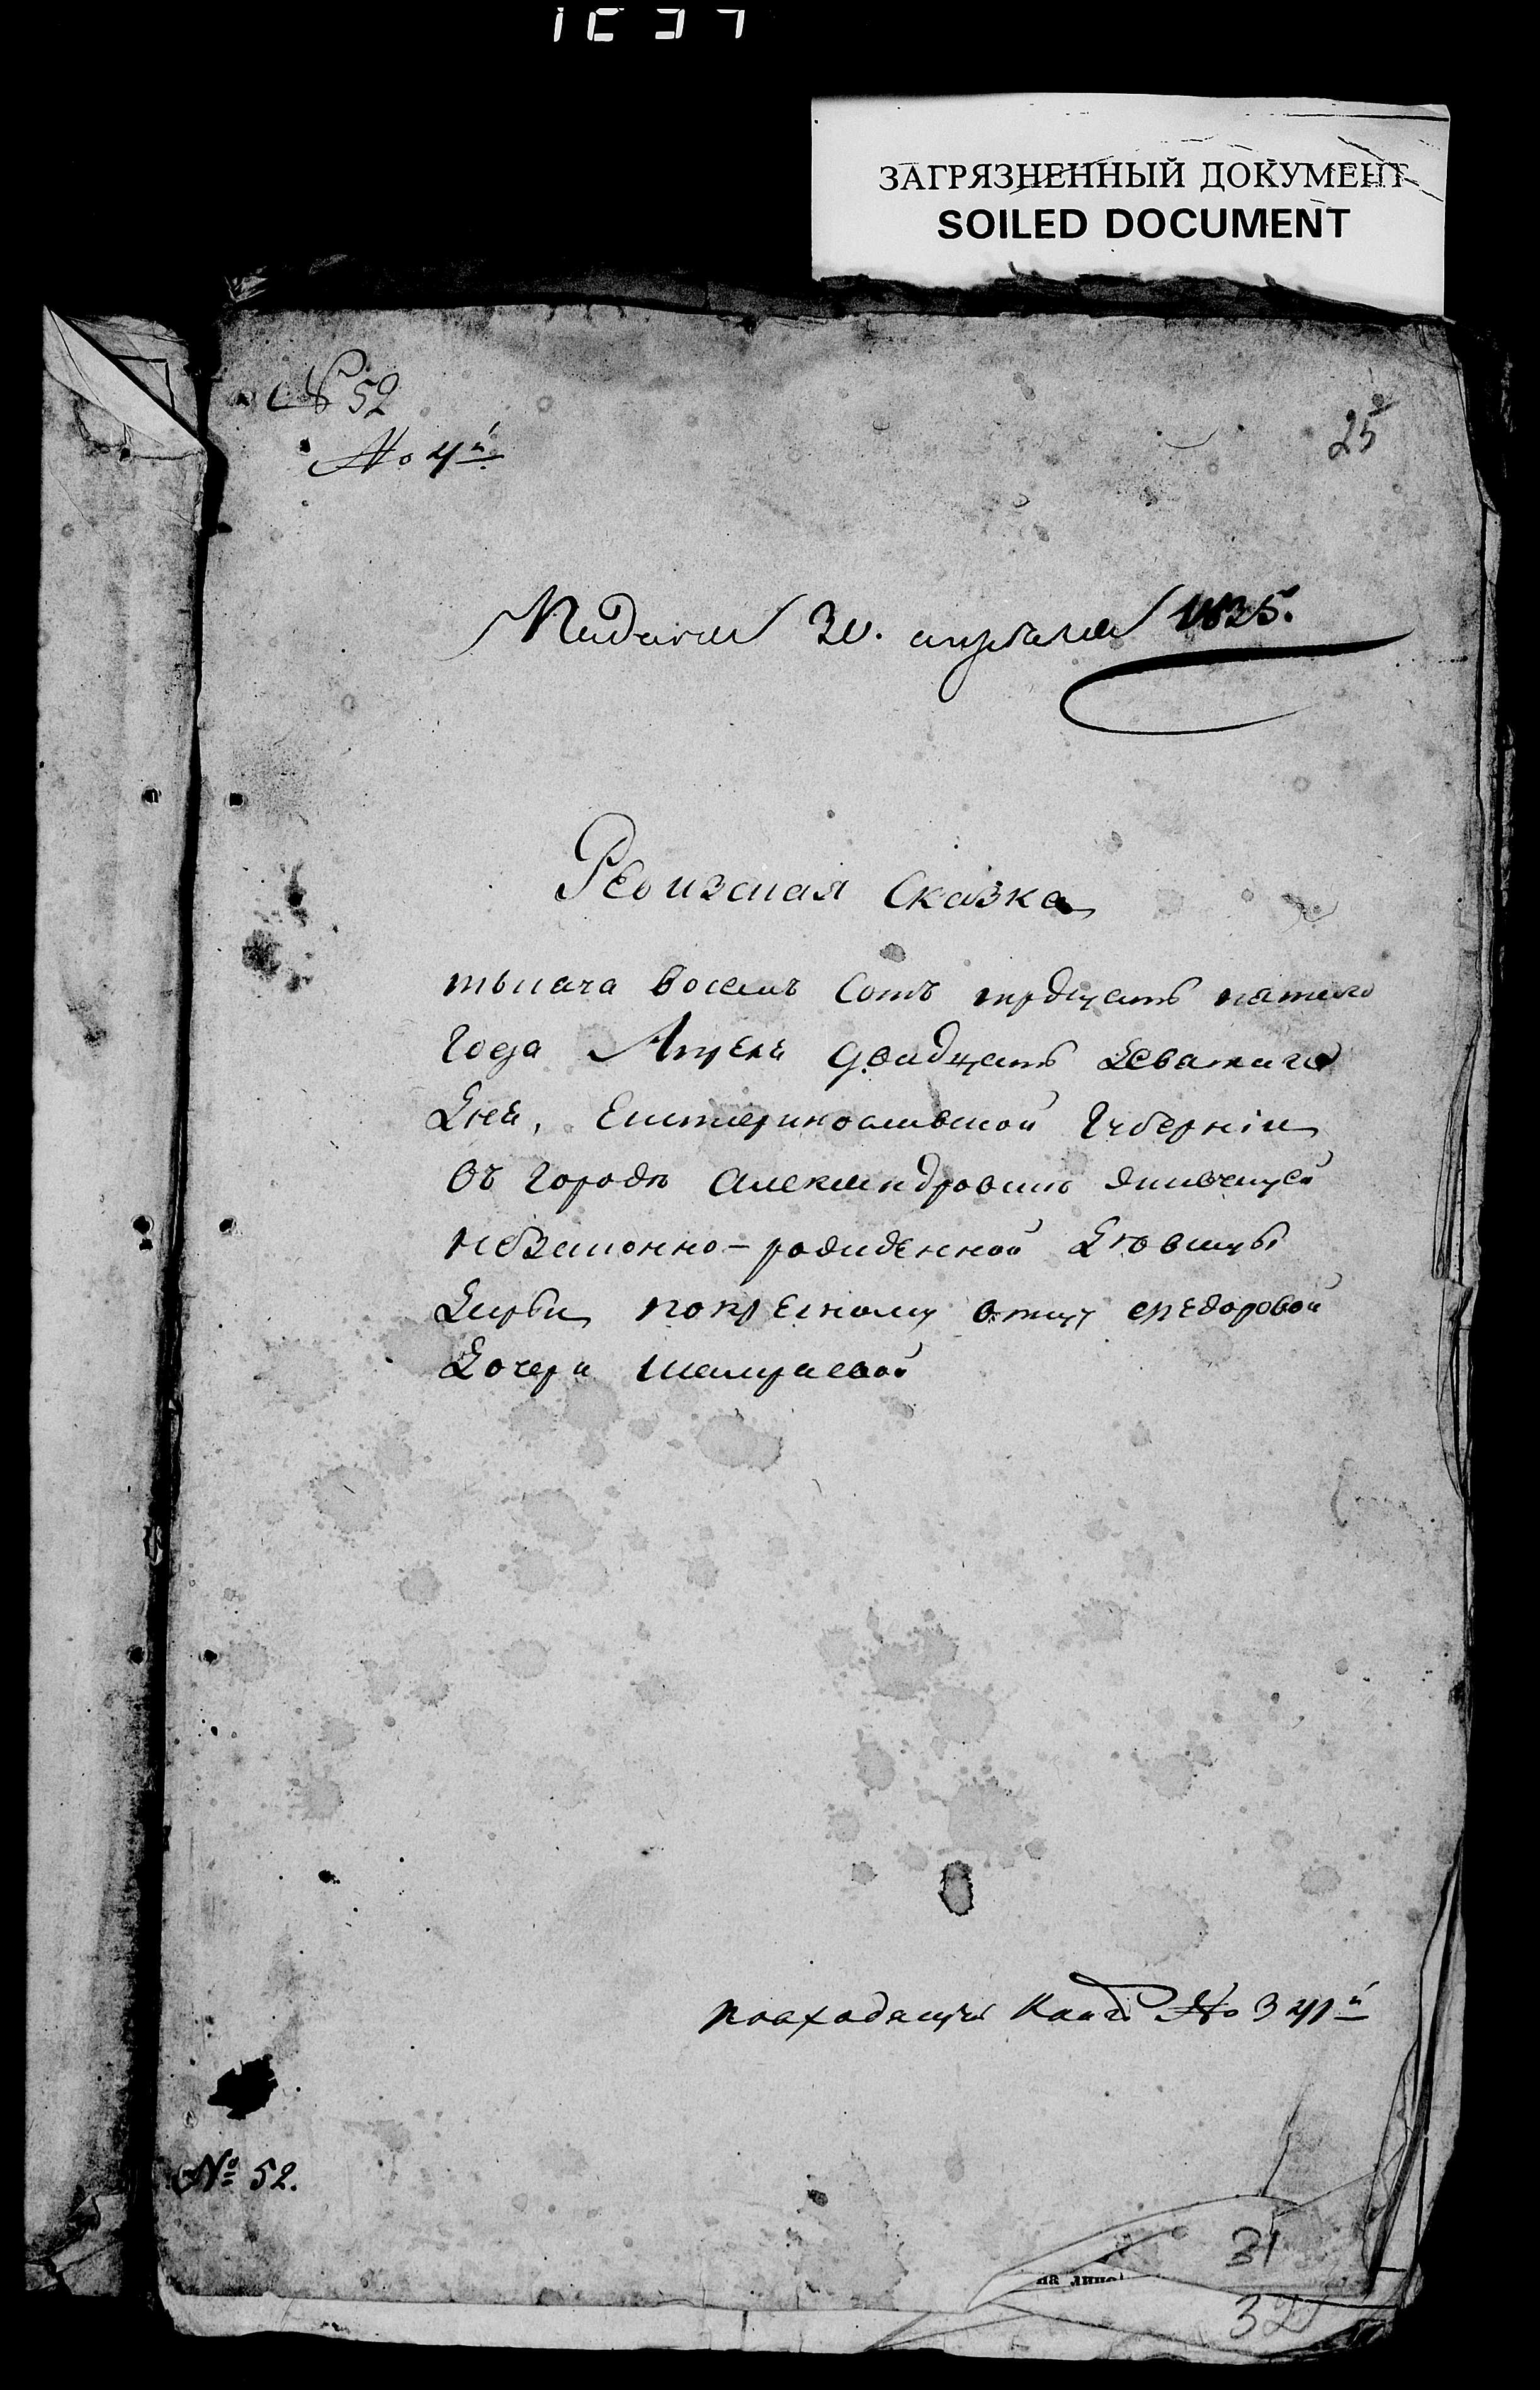 ЗАГРЯЗНЕННЫЙ ДОКУМЕНТ
SOILED DOCUMENT
№ 52
No 4й
25
Подана 30. апреля 1835.
Ревизская Сказка
тысяча восемь Сотъ тридцать пятаго
Года Апреля двадцать Девятаго
Дня, Екатеринославской Губерніи
Въ Городѣ Александровскѣ живущей
незаконно-рожденной Девицы
Дарьи по крестному отцу Федоровой
Дочери
повходящей Книгѣ No 341й
№ 52.
31
на лицо
32